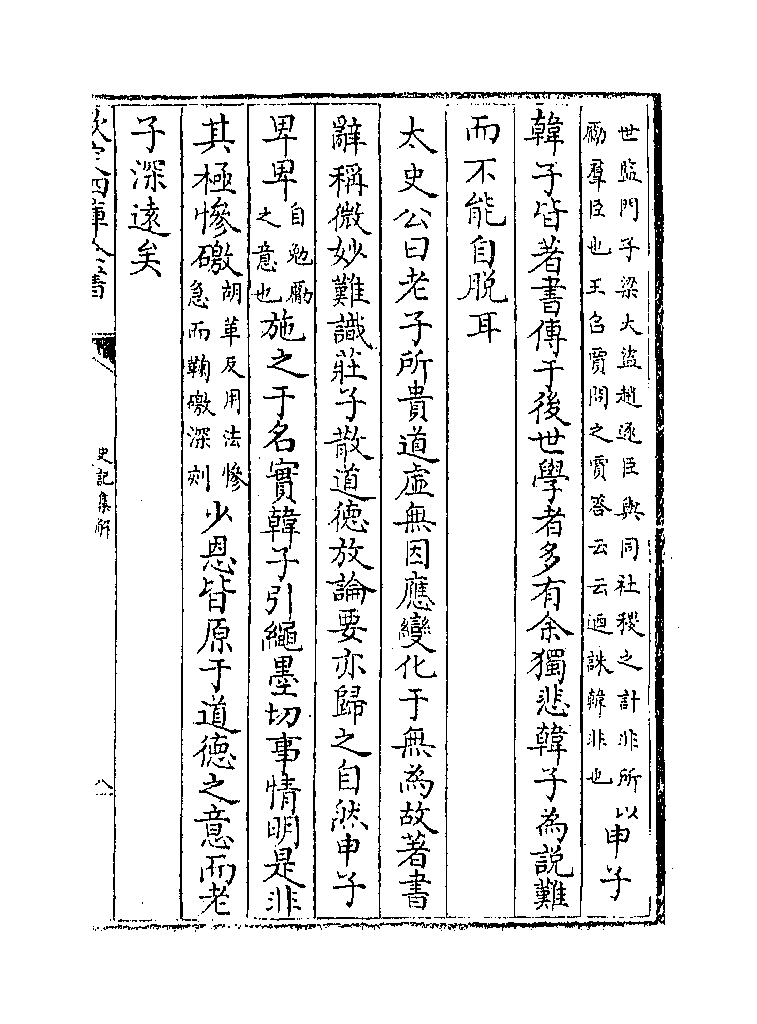 世監門子梁大盜趙逐臣與同社稷之計非所以
勵羣臣也王召賈問之賈答云云迺誅韓非也
申子
韓子皆著書傳于後世學者多有余獨悲韓子為說難
而不能自脫耳
太史公曰老子所貴道虛無因應變化于無為故著書
辭稱微妙難識莊子散道德放論要亦歸之自然申子
卑卑
自勉勵
之意也
施之于名實韓子引繩墨切事情明是非
其極慘礉
胡革反用法慘
急而鞠礉深刻
少恩皆原于道德之意而老
子深遠矣
欽定四庫全書
史記集解
八